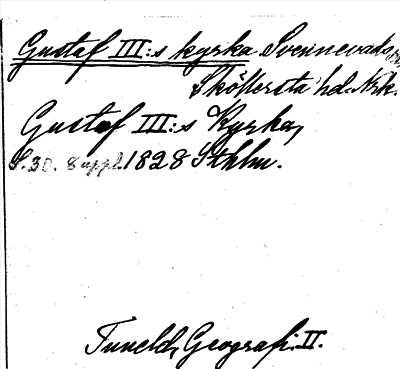 Gustaf III:s kyrka Svennevads
Sköllersta hd. Nrk.
Gustaf III:s Kyrka,
S. 30. 8 uppl. 1828 Sthlm.
Tuneld, Geografi. II.